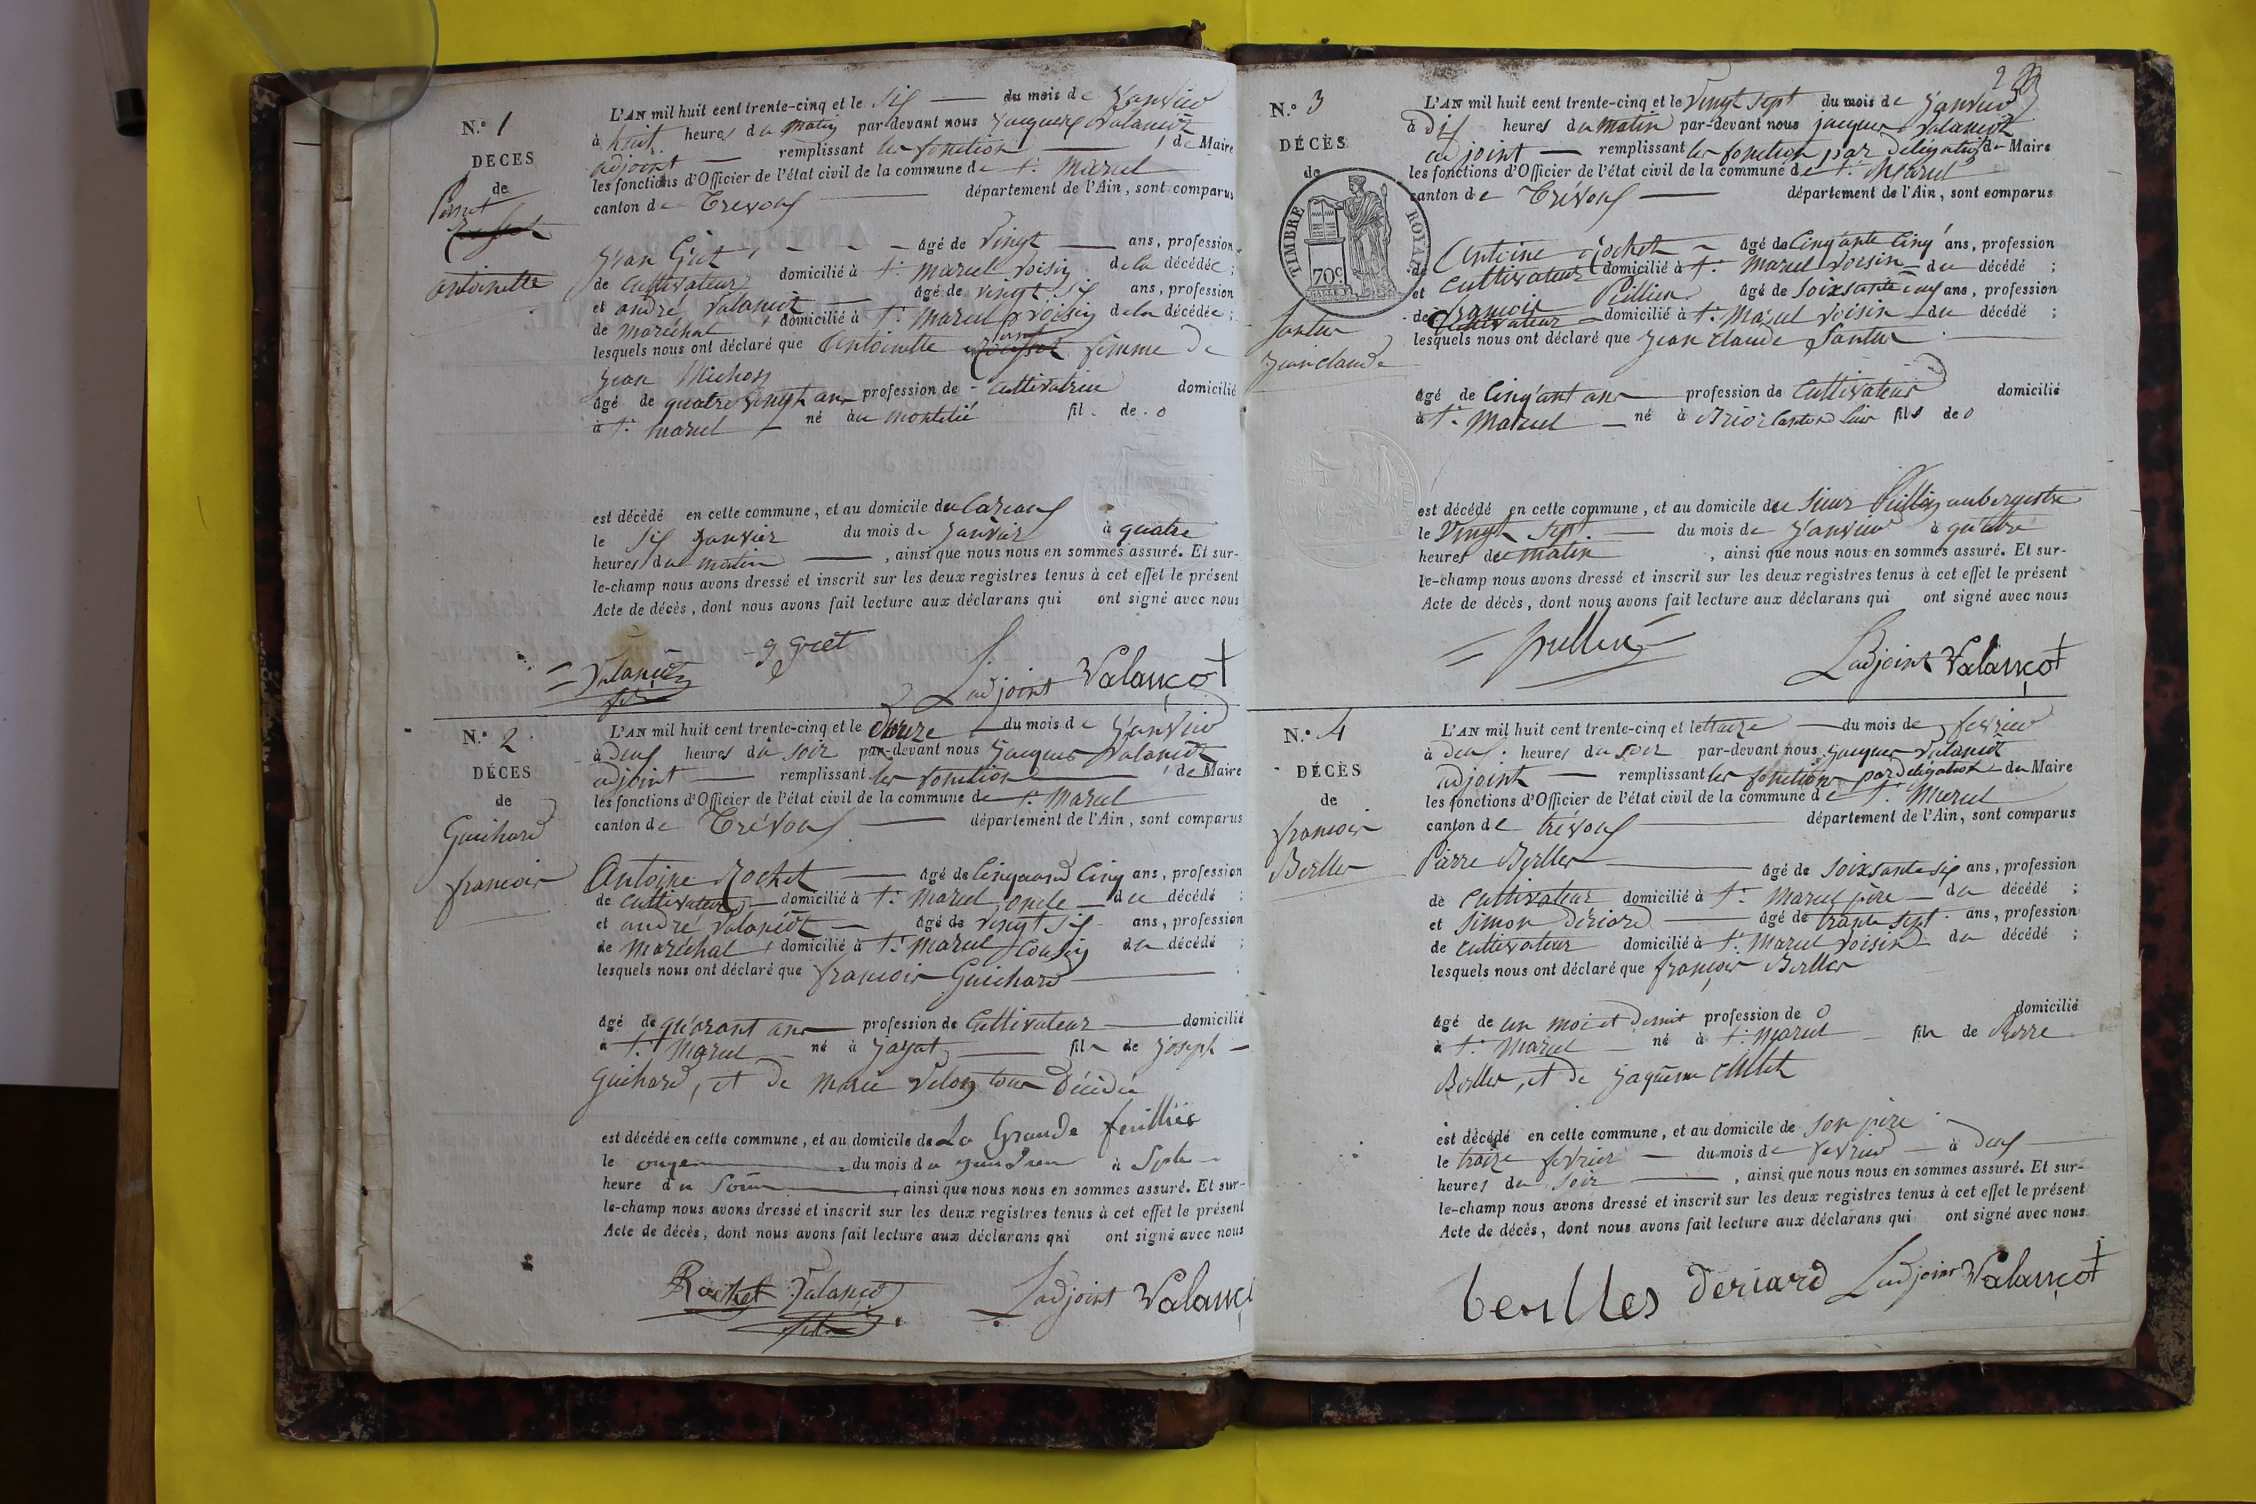 N.º 1
DECES
de
Perret
antoinette
L'AN mil huit cent trente-cinq et le six du mois de Janvier
à huit heures du matin par-devant nous Jacques Valançot
adjoint remplissant les fonction de Maire
les fonctions d'Officier de l'état civil de la commune de St. Marcel
canton de Trevoux département de l'Ain, sont comparus
Jean Giet âgé de vingt ans, profession
de Cultivateur domicilié à St. Marcel voisin de la décédée ;
et andré Valançot âgé de vingt six ans, profession
de maréchal domicilié à St. Marcel voisin de la décédée ;
lesquels nous ont déclaré que Antoinette femme de
Jean Michon
âgé de quatre vingt ans profession de Cultivatrice domicilié
à St. Marcel né au montelié fil de 0
est décédé en cette commune, et au domicile du
le six Janvier du mois de Janvier à quatre
heures du matin , ainsi que nous nous en sommes assuré. Et sur-
le-champ nous avons dressé et inscrit sur les deux registres tenus à cet effet le présent
Acte de décès, dont nous avons fait lecture aux déclarans qui ont signé avec nous
Valançot fils g giet L'adjoint Valançot
N.º 2
DÉCES
de
Guichard
francois
L'AN mil huit cent trente-cinq et le douze du mois de Janvier
à deux heures du soir par-devant nous Jacques Valançot
adjoint remplissant les fonction de Maire
les fonctions d'Officier de l'état civil de la commune de St. Marcel
canton de Trévoux département de l'Ain, sont comparus
Antoine Rochet âgé de Cinquand Cinq ans, profession
de cultivateur domicilié à St. Marcel oncle du décédé ;
et andré Valançot âgé de vingt six ans, profession
de maréchal domicilié à St. Marcel Cousin du décédé ;
lesquels nous ont déclaré que francois Guichard
âgé de quarant ans profession de Cultivateur domicilié
à St. Marcel né à Jayat fils de Joseph
Guichard, et de Marie Velon tous décédé
est décédé en cette commune, et au domicile de La Grande feuillée
le onze du mois de à Sept
heure du Soir , ainsi que nous nous en sommes assuré. Et sur-
le-champ nous avons dressé et inscrit sur les deux registres tenus à cet effet le présent
Acte de décès, dont nous avons fait lecture aux déclarans qui ont signé avec nous
Rochet Valançot fils L'adjoint Valanç
2
N.º 3
DÉCÈS
de
TIMBRE ROYAL
70c
Santer
Jean claude
L'AN mil huit cent trente-cinq et le vingt sept du mois de Janvier
à dix heures du matin par-devant nous jacques Valançot
adjoint remplissant les fonction par deligation du Maire
les fonctions d'Officier de l'état civil de la commune de St. Marcel
canton de Trévoux département de l'Ain, sont comparus
Antoine Rochet âgé de Cinq'ante Cinq ans, profession
de Cultivateur domicilié à St. Marcel voisin du décédé ;
et francois Pillien âgé de soixsante ans, profession
de Cultivateur domicilié à St. Marcel voisin du décédé ;
lesquels nous ont déclaré que Jean Claude Santer
âgé de Cinq'ant ans profession de Cultivateur domicilié
à St. Marcel né à fils de 0
est décédé en cette commune, et au domicile de sieur aubergiste
le vingt sept du mois de Janvier à quatre
heures du matin , ainsi que nous nous en sommes assuré. Et sur-
le-champ nous avons dressé et inscrit sur les deux registres tenus à cet effet le présent
Acte de décès, dont nous avons fait lecture aux déclarans qui ont signé avec nous
L'adjoint Valançot
N.º 4
DÉCÈS
de
francois
Berlles
L'AN mil huit cent trente-cinq et le traize du mois de fevrier
à deux heures du soir par-devant nous Jacques Valançot
adjoint remplissant les fonction par deligation du Maire
les fonctions d'Officier de l'état civil de la commune de St. Marcel
canton de trévoux département de l'Ain, sont comparus
Pierre Berlles âgé de soixsante six ans, profession
de Cultivateur domicilié à St. Marcel père du décédé ;
et simon deriard âgé de trante sept ans, profession
de cultivateur domicilié à St. Marcel voisin du décédé ;
lesquels nous ont déclaré que françois Berlles
âgé de un moi et demit profession de 0 domicilié
à St. Marcel né à St. Marcel fils de Pierre
Berlles, et de Jaqueme
est décédé en cette commune, et au domicile de son père
le traize fevrier du mois de fevrier à deux
heures du soir , ainsi que nous nous en sommes assuré. Et sur-
le-champ nous avons dressé et inscrit sur les deux registres tenus à cet effet le présent
Acte de décès, dont nous avons fait lecture aux déclarans qui ont signé avec nous
berlles Deriard L'adjoint Valançot